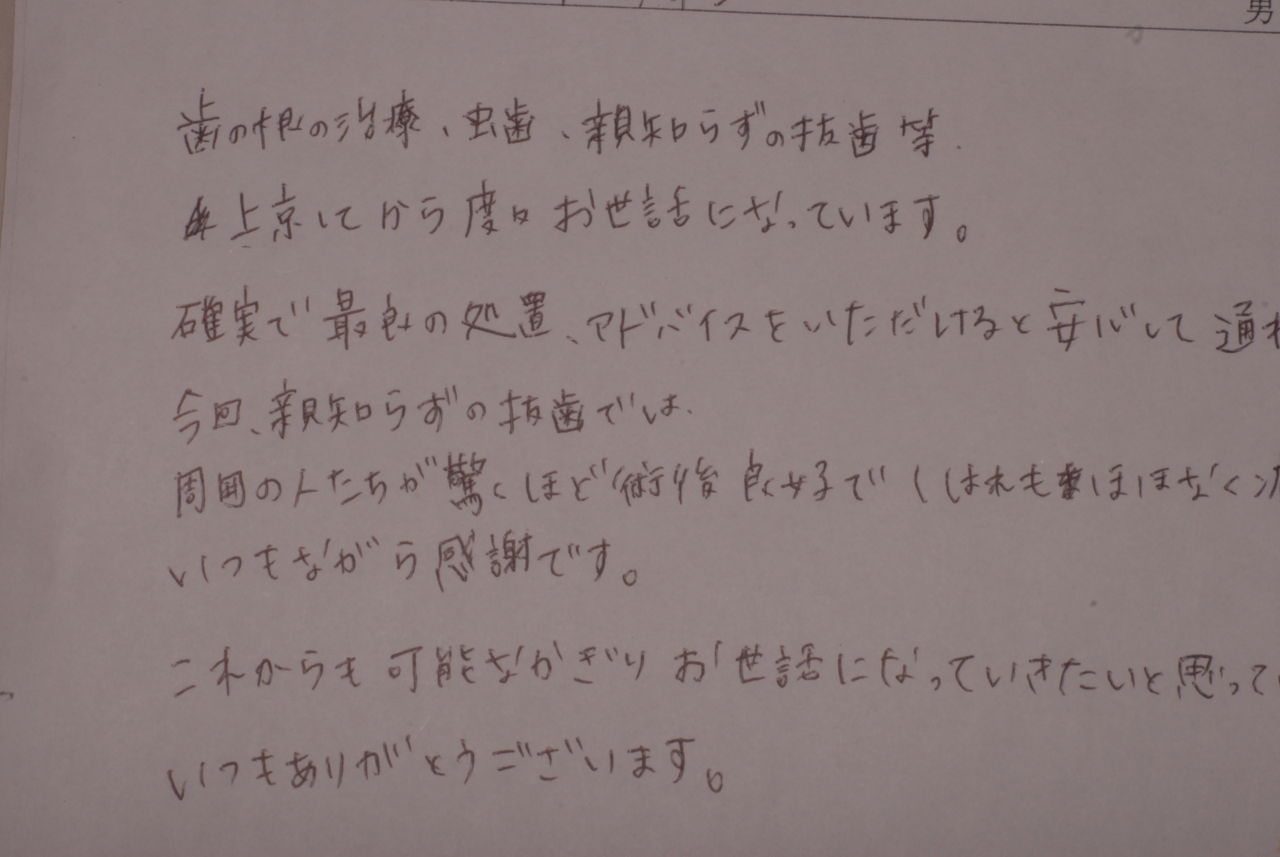 男
歯の根の治療、虫歯、親知らずの抜歯等、
上京してから度々お世話になっています。
確実で最良の処置、アドバイスをいただけると安心して通
今回、親知らずの抜歯では、
周囲の人たちが驚くほど術後良好で(はれもほぼなく
いつもながら感謝です。
これからも可能なかぎりお世話になっていきたいと思って
いつもありがとうございます。